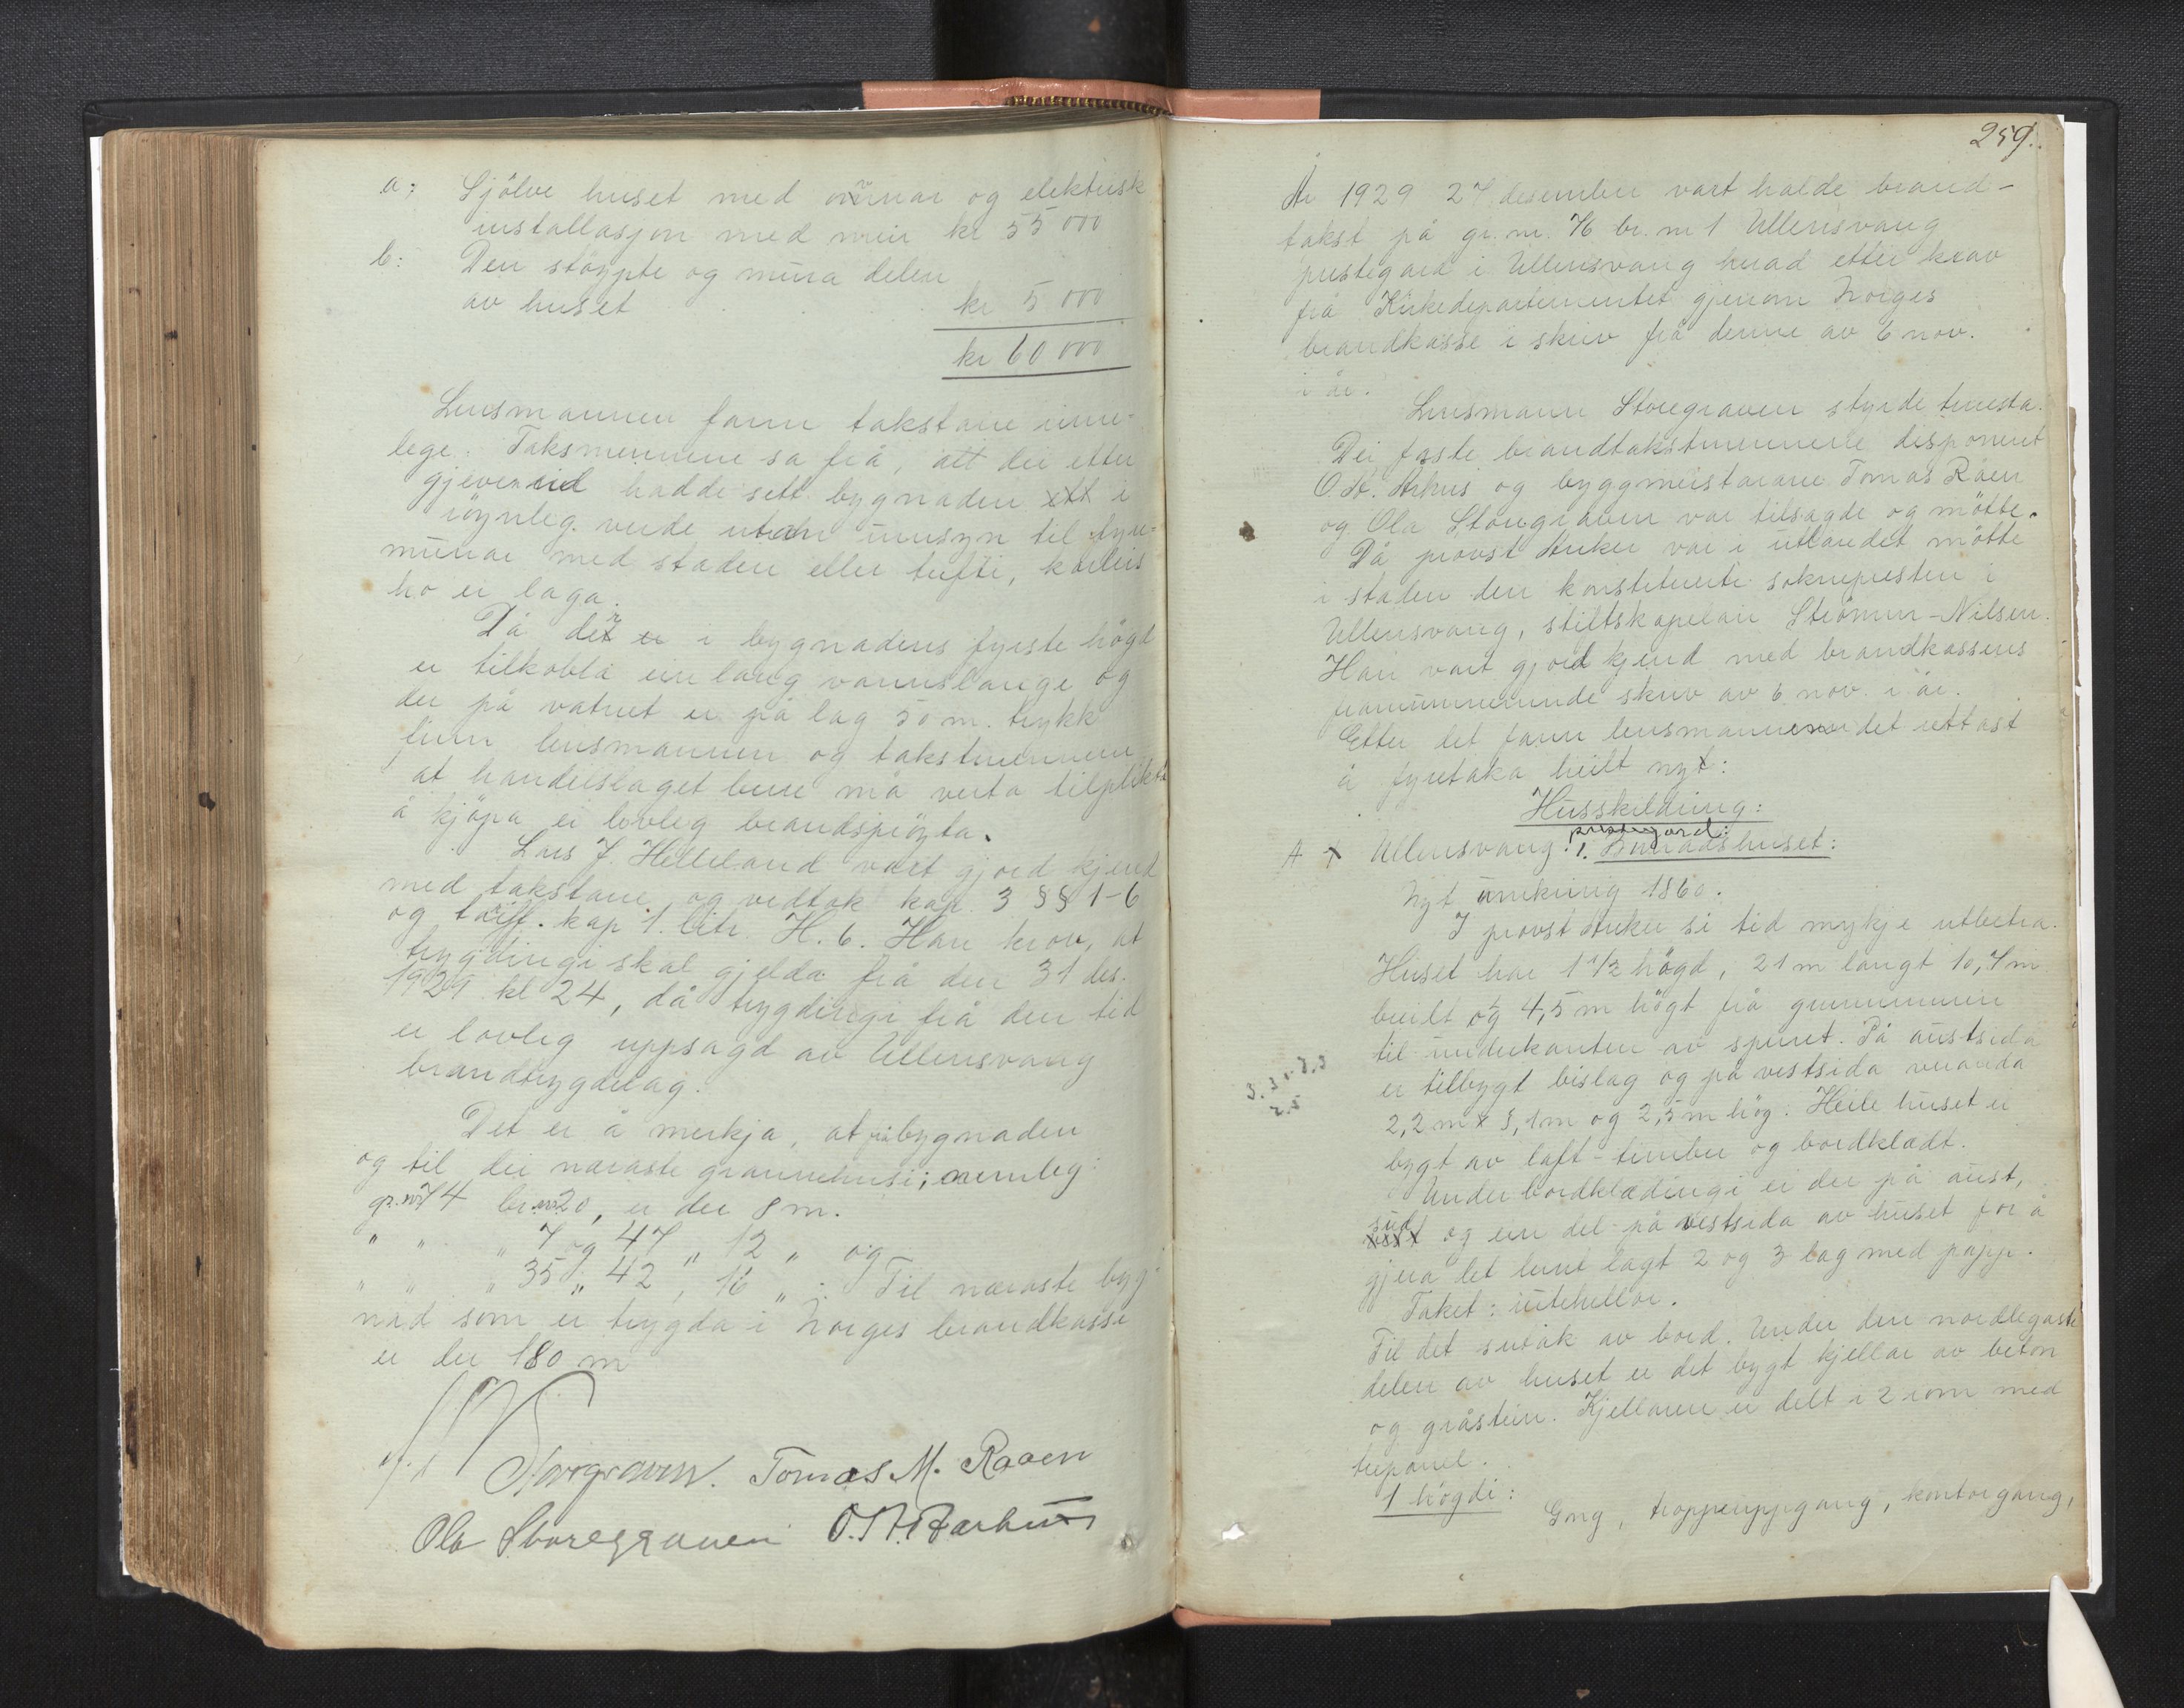 a: Sjölve huset med omnar og elektrisk
installasjon med meir kr 55 000
b: Den stöypte og mura delen
av huset kr 5 000
kr 60 000
Lensmannen fann takstane rime-
lege. Taksmennene sa frå, att dei etter
gjeve eid hadde sett bygnaden i
röynleg verde utan umsyn til
munar med staden eller tufti, korleis
ho er laga.
Då der i bygnadens fyrste högd
er tilkobla ein lang vannslange og
der på vatnet er på lag 50 m. trykk
finn lensmannen og takstmennene
at handelslaget bere må verta tilplikta
å kjöpa ei lovleg brandspröyta.
Lars J. Helleland vart gjord kjend
med takstane og vedtok kap. 3 §§ 1-6
og tariff. kap 1. litr. H. 6. Han krov, at
trygdingi skal gjelda frå den 31 des.
1929 kl 24, då trygdingi frå den tid
er lovleg uppsagd av Ullensvang
brandtrygdelag.
Det er å merkja, at frå bygnaden
og til dei næraste grannehusi; nemleg:
gr. nr 74 br. nr 20, er der 8 m.
" " " 7 og 47 " 12 " og
" " " 35 " 42 " 16 " . Til næraste byg-
nad som er trygda i Norges brandkasse
er der 180 m
Storegraven. Tomas M. Raaen
Ola Storegraven O. A. Aarhus
259.
År 1929 27 desember vart halde brand-
takst på gr. nr. 76 br. nr 1 Ullensvang
prestegard i Ullensvang herad etter krav
frå Kirkedepartementet gjenom Norges
brandkasse i skriv frå denne av 6 nov.
i år.
Lensmann Storegraven styrde tenesta.
Dei faste brandtakstmennene disponent
O. A. Århus og byggmeistarane Tomas Råen
og Ola Storegraven var tilsagde og mötte.
Då provst Anker var i utlandet mötte
i staden den konstituerte soknepresten i
Ullensvang, stiftskapelan Strömm-Nilsen.
Han vart gjord kjend med brandkassens
framumnemnde skriv av 6 nov. i år.
Etter det fann lensmannen det rettast
å fyretaka heilt nyt:
Husskildring:
A Ullensvang prestegard: 1. Bunadshuset:
Nyt umkring 1860.
I provst Anker si tid mykje utbetra.
Huset har 1 1/2 högd, 21 m langt 10,7 m
breidt og 4,5 m högt frå grunnmuren
til underkanten av sperret. På austsida
er tilbygt bislag og på vestsida veranda
3. 3 x 3,3
2.5
2,2 m x 3,1 m og 2,5 m hög. Heile huset er
bygt av laft-timber og bordklædt.
Under bordklædingi er der på aust,
sud og ein del på vestsida av huset for å
gjera det lunt lagt 2 og 3 lag med papp.
Taket: rutehellor.
Til det sutak av bord. Under den nordlegaste
delen av huset er det bygt kjellar av beton
og gråstein. Kjellaren er delt i 2 rom med
trepanel.
1 högdi: Gng, trappeuppgang, kontorgang,